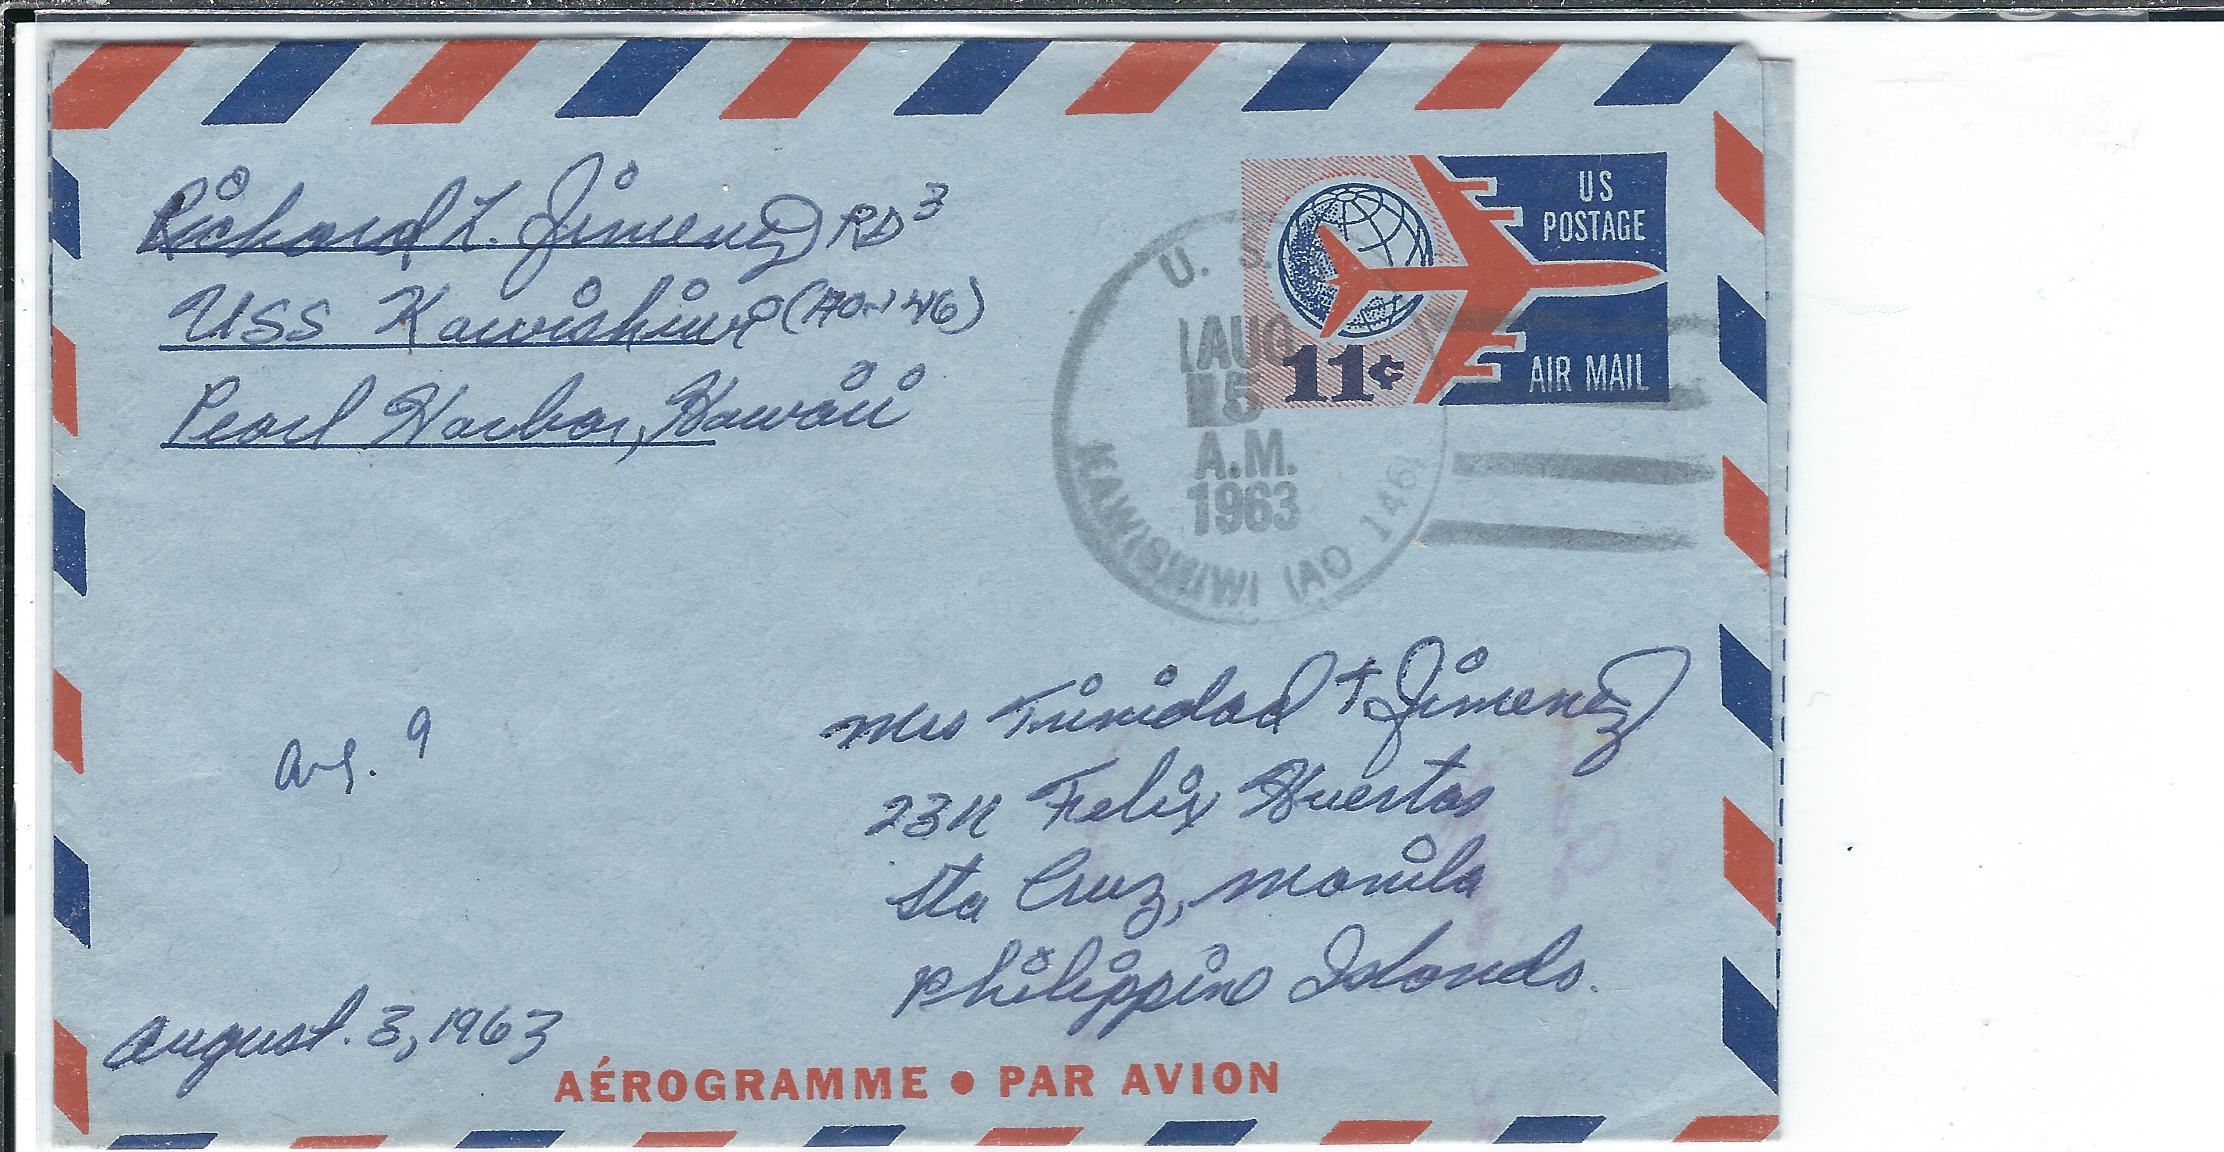 Richard L. Jimenez RD3
USS Kawishiwi (AO-146)
Pearl Harbor, Hawaii
US
POSTAGE
11¢
AIR MAIL
U. S.
AUG
5
A.M.
1963
KAWISHIWI (AO 146)
Mrs Trinidad T Jimenez
Felix Huertas
Sta Cruz, Manila
Philippine Islands.
Aug. 9
August. 3, 1963
AÉROGRAMME • PAR AVION